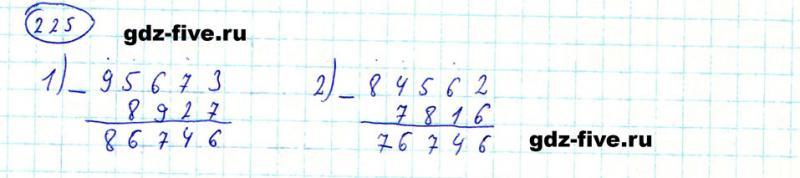 225
gdz-five.ru
1) - 95673
8927
86746
2) - 84562
7816
76746
gdz-five.ru